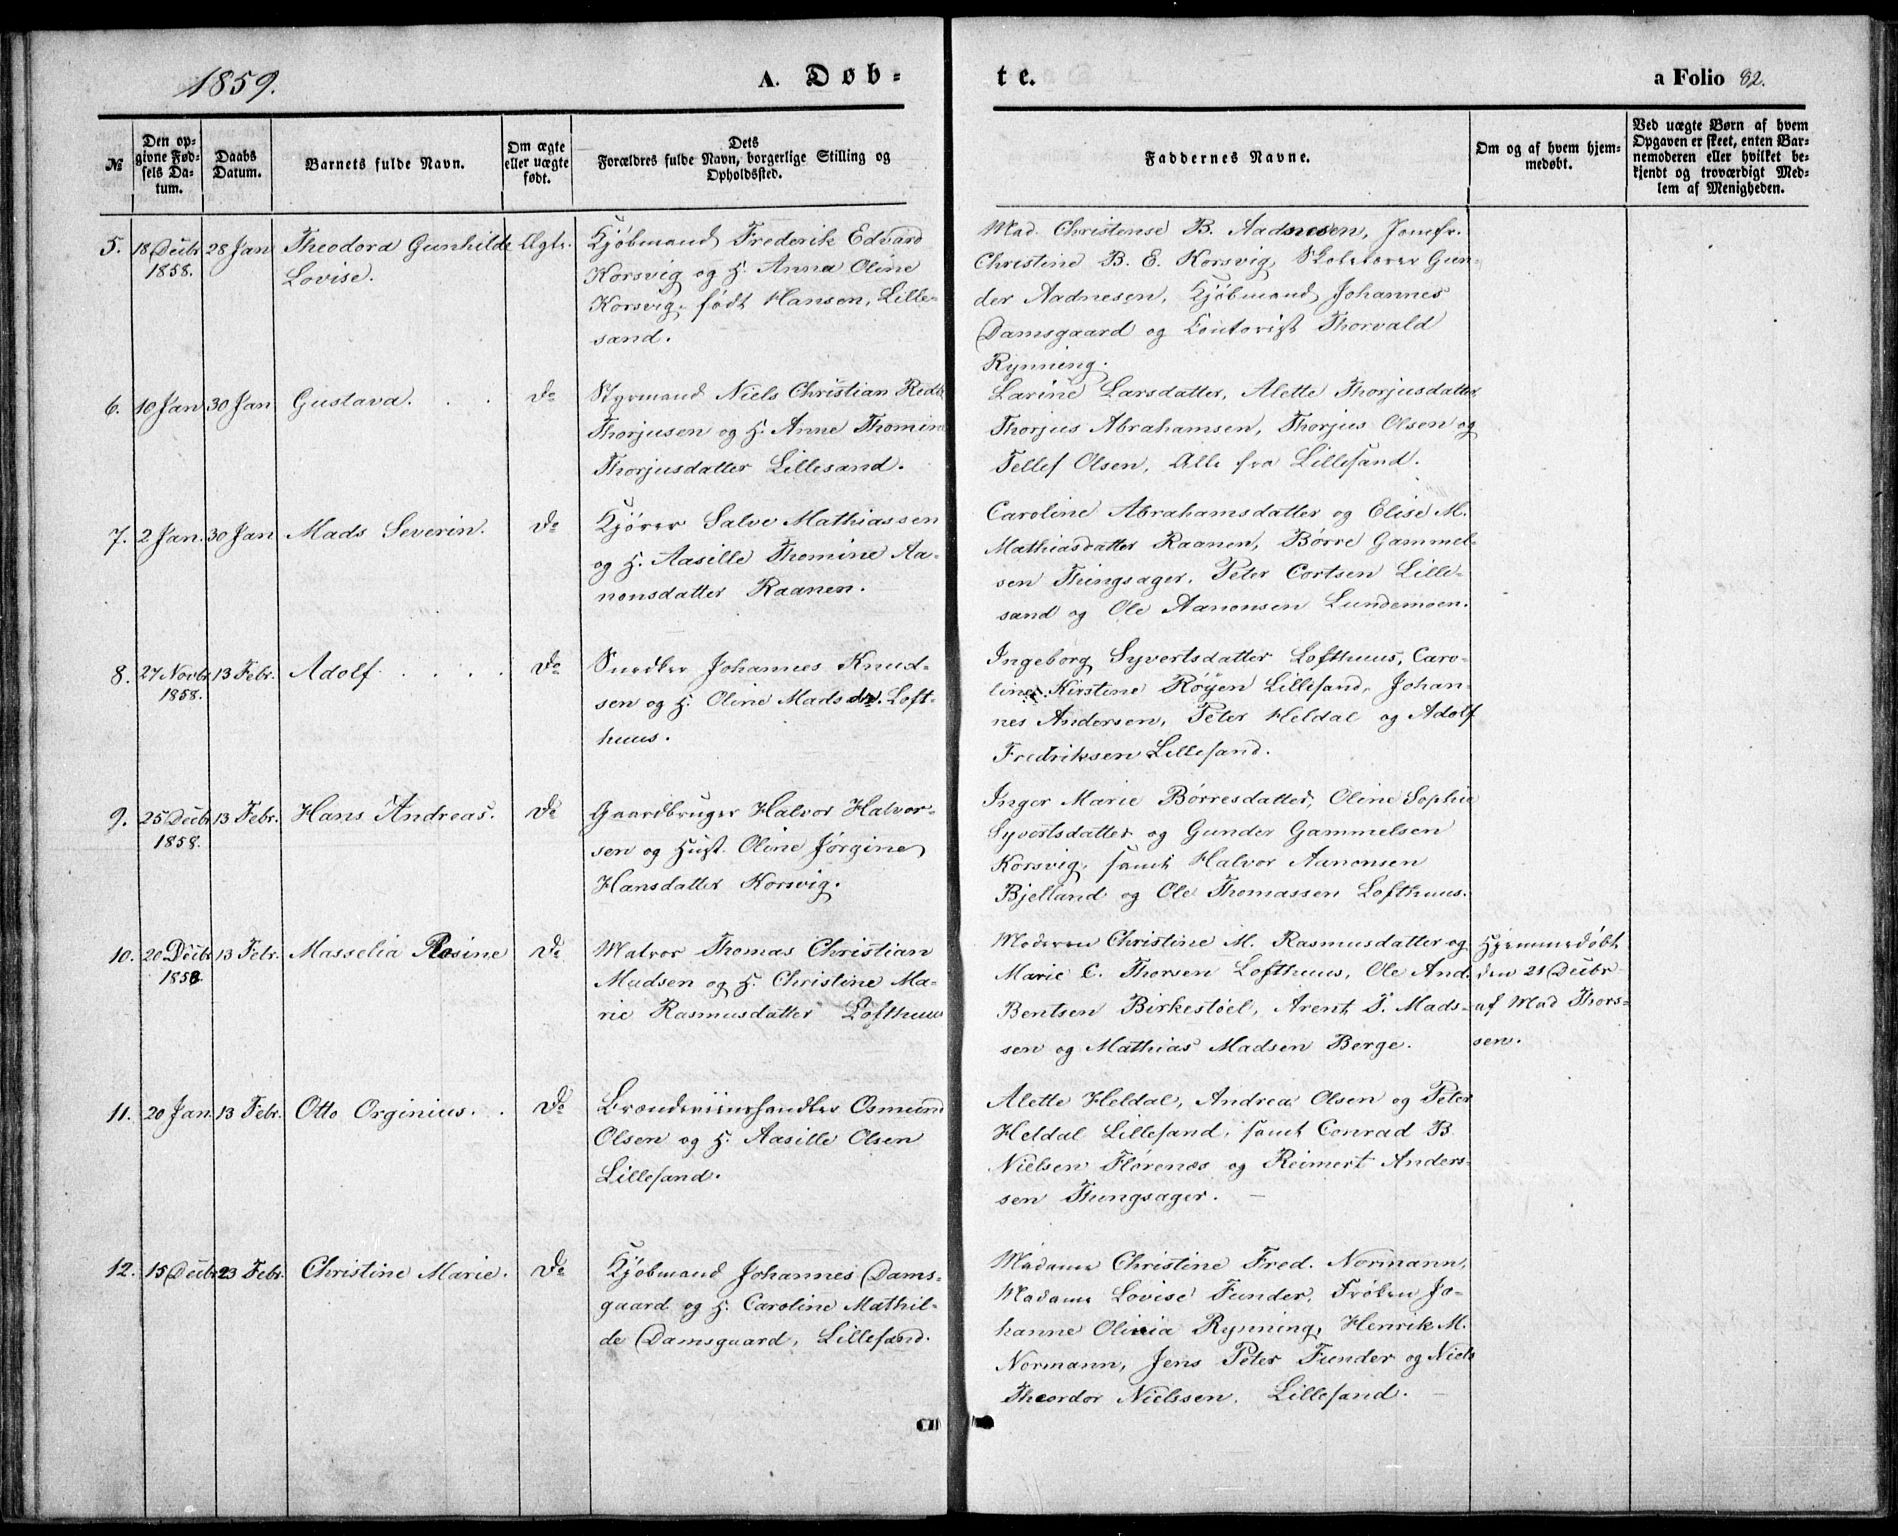 1859.
A. Døb-
te.
a Folio 82.
№
Den op-
givne Fød-
sels Da-
tum.
Daabs
Datum.
Barnets fulde Navn.
Om ægte
eller uægte
født.
Dets
Forældres fulde Navn, borgerlige Stilling og
Opholdssted.
Faddernes Navne.
Om og af hvem hjem-
medøbt.
Ved uægte Børn af hvem
Opgaven er skeet, enten Bar-
nemoderen eller hvilket be-
kjendt og troværdigt Med-
lem af Menigheden.
5. 18 Decbr 1858. 28 Jan Theodora Gunhilde Lovise. Ægte.
Kjøbmand Frederik Edvard
Korsvig og H. Anna Oline
Korsvig, født Hansen, Lille-
sand.
Mad. Christense B. Aadnesen, Jomfr.
Christine B. E. Korsvig, Skolelærer Gun-
der Aadnesen, Kjøbmand Johannes
Damsgaard og Contorist Thorvald
Rynning.
6. 10 Jan 30 Jan Gustava. Do
Styrmand Niels Christian
Thorjusen og H. Anne Thomine
Thorjusdatter Lillesand.
Larine Larsdatter, Alette Thorjusdatter,
Thorjus Abrahamsen, Thorjus Olsen og
Tellef Olsen, Alle fra Lillesand.
7. 2 Jan. 30 Jan Mads Severin. Do
Kjører Salve Mathiassen
og H. Aasille Thomine Aa-
nonsdatter Raanen.
Caroline Abrahamsdatter og Elise M.
Mathiasdatter Raanen, Børre Gammel-
sen Thingsager, Peter Cortsen Lille-
sand og Ole Aanonsen Lundemoen.
8. 27 Novbr 1858. 13 Febr. Adolf. Do
Snedker Johannes Knud-
sen og H. Oline Mads dr. Loft-
huus.
Ingeborg Syvertsdatter Lofthuus, Caro-
line Kirstine Røyen Lillesand, Johan-
nes Andersen, Peter Heldal og Adolf
Fredriksen Lillesand.
9. 25 Decbr 1858. 13 Febr. Hans Andreas. Do
Gaardbruger Halvor Halvor-
sen og Hust. Oline Jørgine
Hansdatter Korsvig.
Inger Marie Børresdatter, Oline Sophie
Syvertsdatter og Gunder Gammelsen
Korsvig, samt Halvor Aanonsen
Bjelland og Ole Thomassen Lofthuus.
10. 20 Decbr 1858 13 Febr. Masselia Rosine Do
Matros Thomas Christian
Madsen og H. Christine Ma-
rie Rasmusdatter Lofthuus
Moderen Christine M. Rasmusdatter og
Marie C. Thorsen Lofthuus, Ole And.
Bentsen Birkestøel, Arent T. Mads-
sen og Mathias Madsen Berge.
Hjemmedøbt
den 21 Decbr
af Mad Thors-
sen.
11. 20 Jan 13 Febr. Otto Orginius. Do
Brændeviinshandler Osmund
Olsen og H. Aasille Olsen
Lillesand.
Alette Heldal, Andrea Olsen og Peter
Heldal Lillesand, samt Conrad B
Nielsen Florenæs og Reimert Anders-
sen Thingsager.
12. 15 Decbr 23 Febr. Christine Marie. Do
Kjøbmand Johannes Dams-
gaard og H. Caroline Mathil-
de Damsgaard, Lillesand.
Madame Christine Fred. Normann,
Madame Lovise Funder, Frøken Jo-
hanne Olivia Rynning, Henrik M.
Normann, Jens Peter Funder og Niels
Theordor Nielssen, Lillesand.